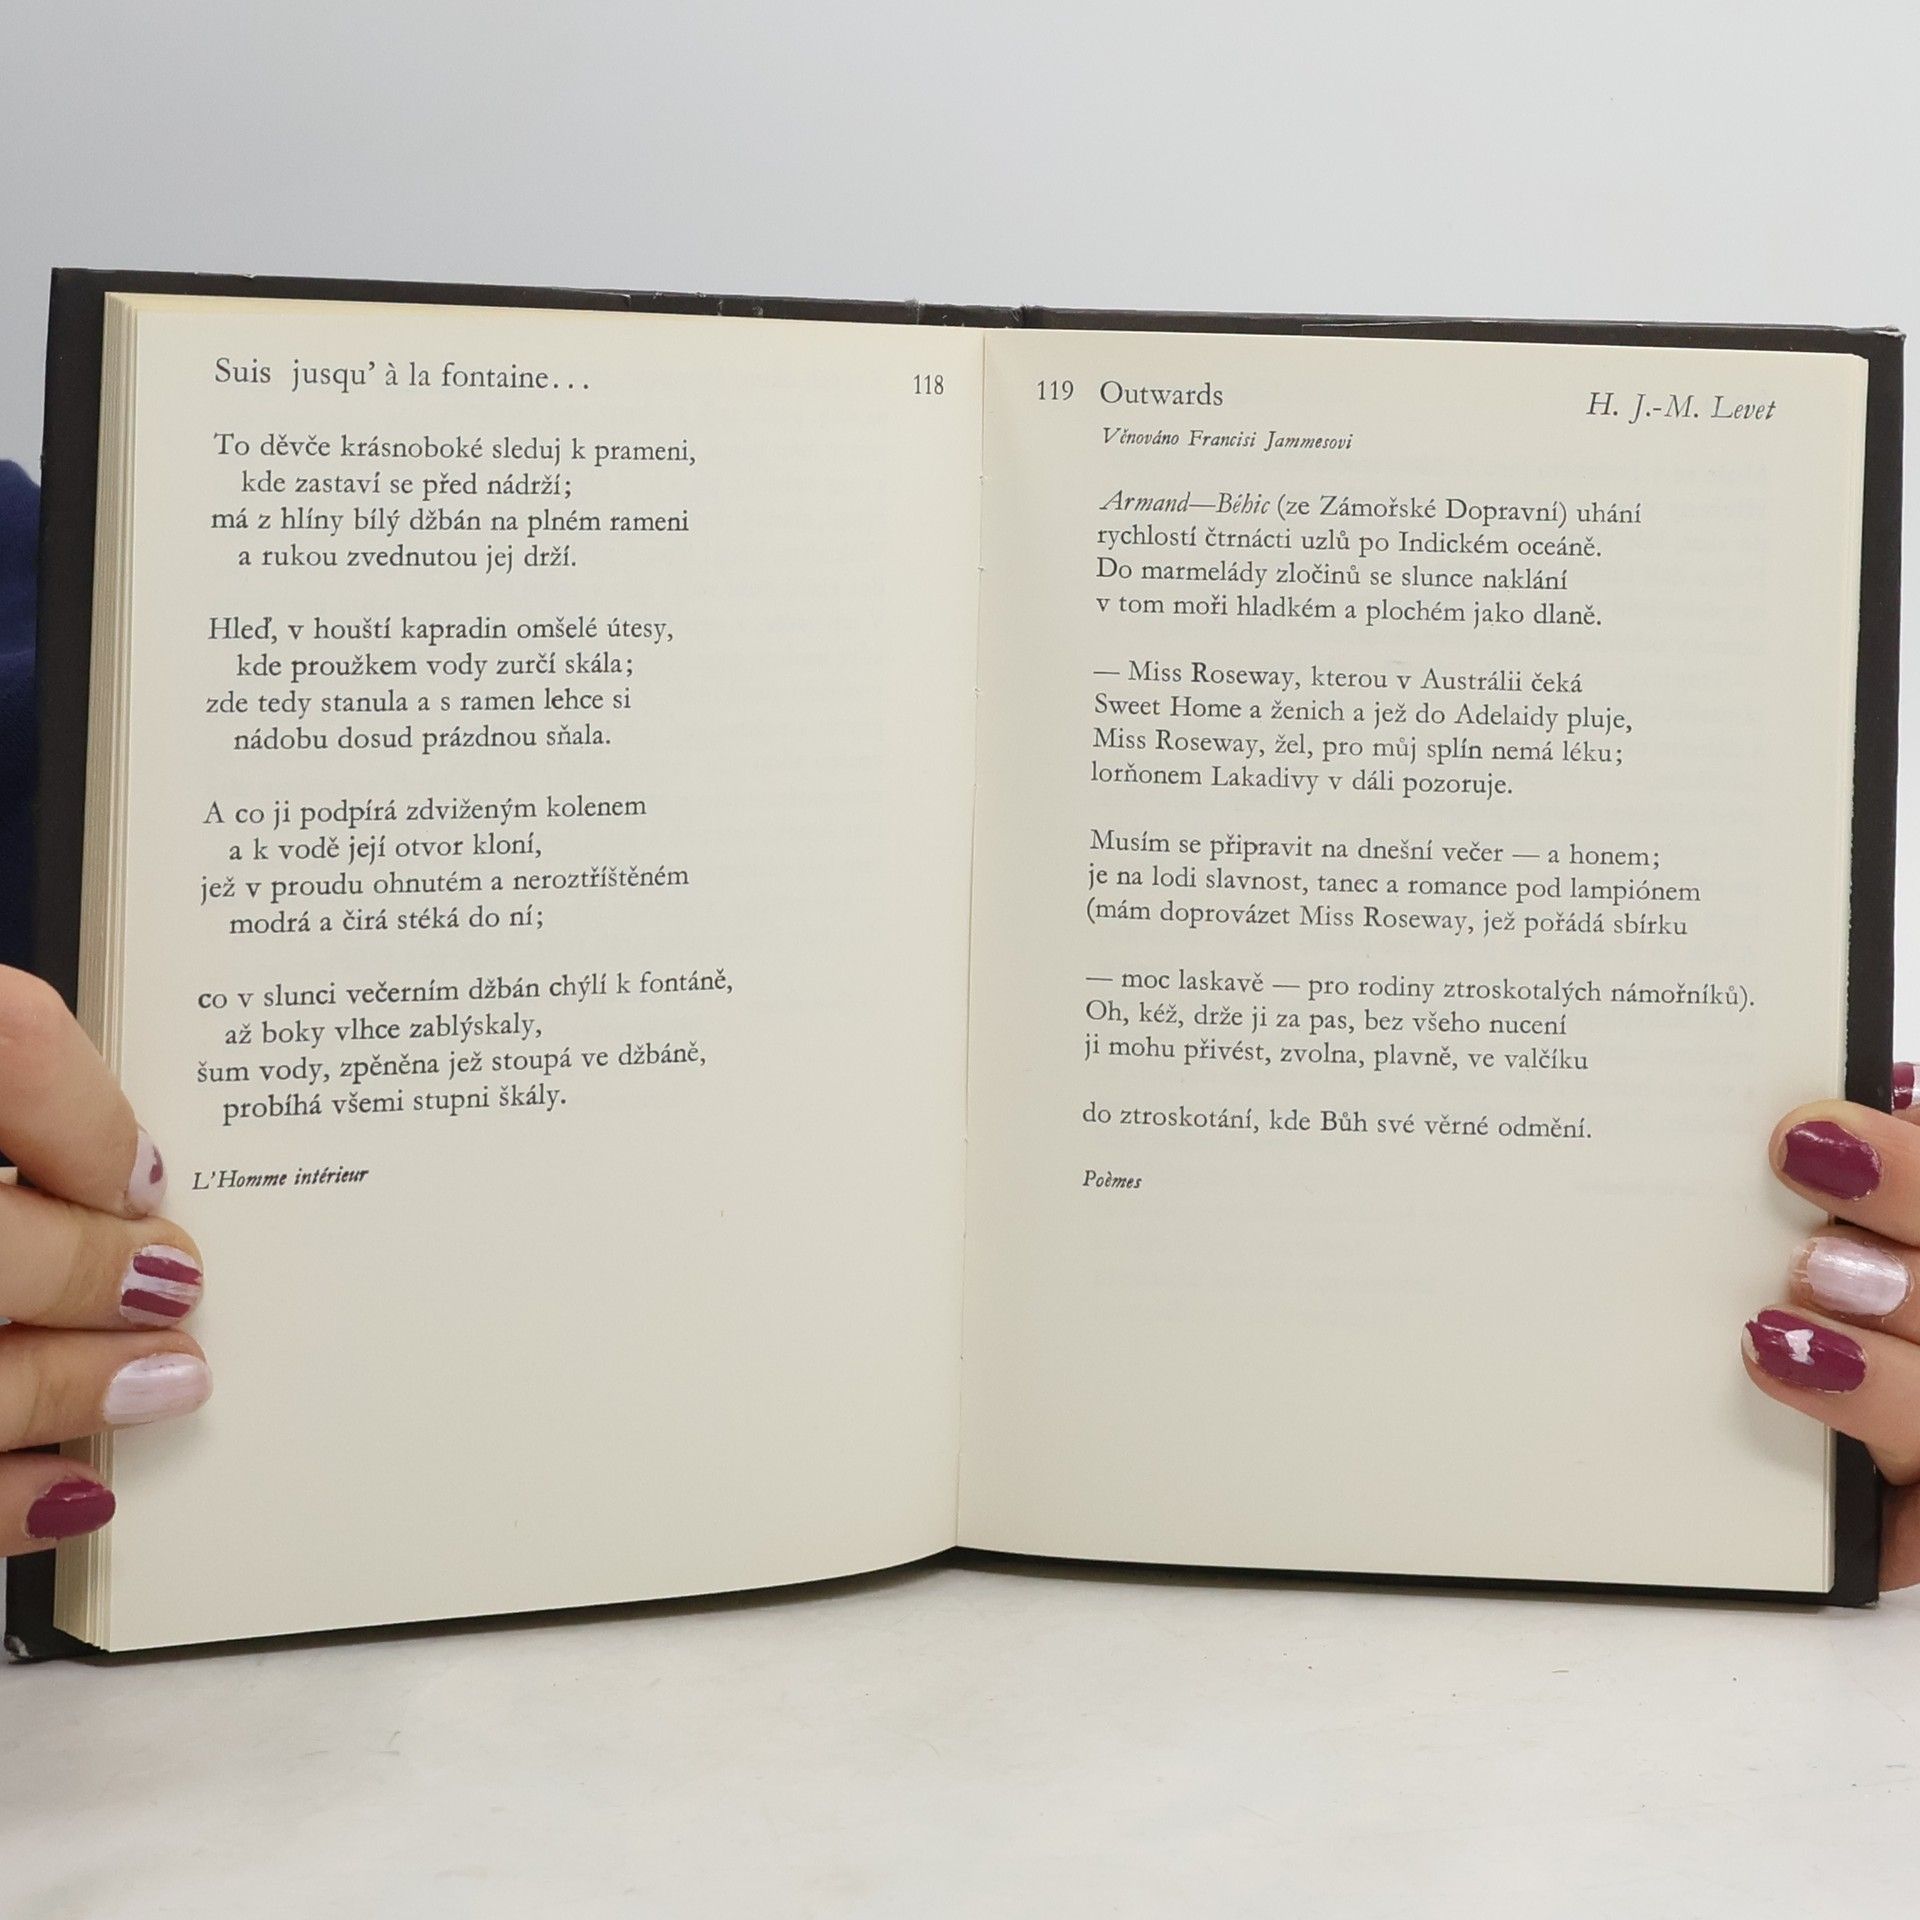 Suis jusqu' à la fontaine...
118
To děvče krásnoboké sleduj k prameni,
kde zastaví se před nádrží;
má z hlíny bílý džbán na plném rameni
a rukou zvednutou jej drží.
Hleď, v houští kapradin omšelé útesy,
kde proužkem vody zurčí skála;
zde tedy stanula a s ramen lehce si
nádobu dosud prázdnou sňala.
A co ji podpírá zdviženým kolenem
a k vodě její otvor kloní,
jež v proudu ohnutém a neroztříštěném
modrá a čirá stéká do ní;
co v slunci večerním džbán chýlí k fontáně,
až boky vlhce zablýskaly,
šum vody, zpěněna jež stoupá ve džbáně,
probíhá všemi stupni škály.
L'Homme intérieur
119 Outwards
H. J.-M. Levet
Věnováno Francisi Jammesovi
Armand—Béhic (ze Zámořské Dopravní) uhání
rychlostí čtrnácti uzlů po Indickém oceáně.
Do marmelády zločinů se slunce naklání
v tom moři hladkém a plochém jako dlaně.
— Miss Roseway, kterou v Austrálii čeká
Sweet Home a ženich a jež do Adelaidy pluje,
Miss Roseway, žel, pro můj splín nemá léku;
lorňonem Lakadivy v dáli pozoruje.
Musím se připravit na dnešní večer — a honem;
je na lodi slavnost, tanec a romance pod lampiónem
(mám doprovázet Miss Roseway, jež pořádá sbírku
— moc laskavě — pro rodiny ztroskotalých námořníků).
Oh, kéž, drže ji za pas, bez všeho nucení
ji mohu přivést, zvolna, plavně, ve valčíku
do ztroskotání, kde Bůh své věrné odmění.
Poèmes